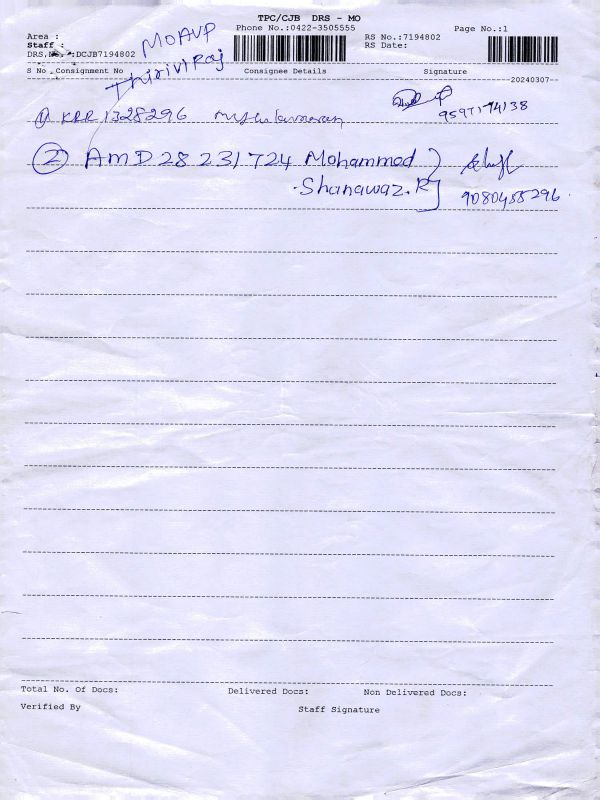 TPC/CJB DRS - MO
Phone No.:0422-3505555
Page No.:1
Area :
Staff :
MOAVP
Thirivi Raj
RS No.:7194802
RS Date:
DRS.No.:DCJB7194802
S No. Consignment No Consignee Details Signature
20240307
① KRR1328296
9597174138
② AMD28231724 Mohammed
Shanawaz.R
9080455296
Total No. Of Docs: Delivered Docs: Non Delivered Docs:
Verified By Staff Signature